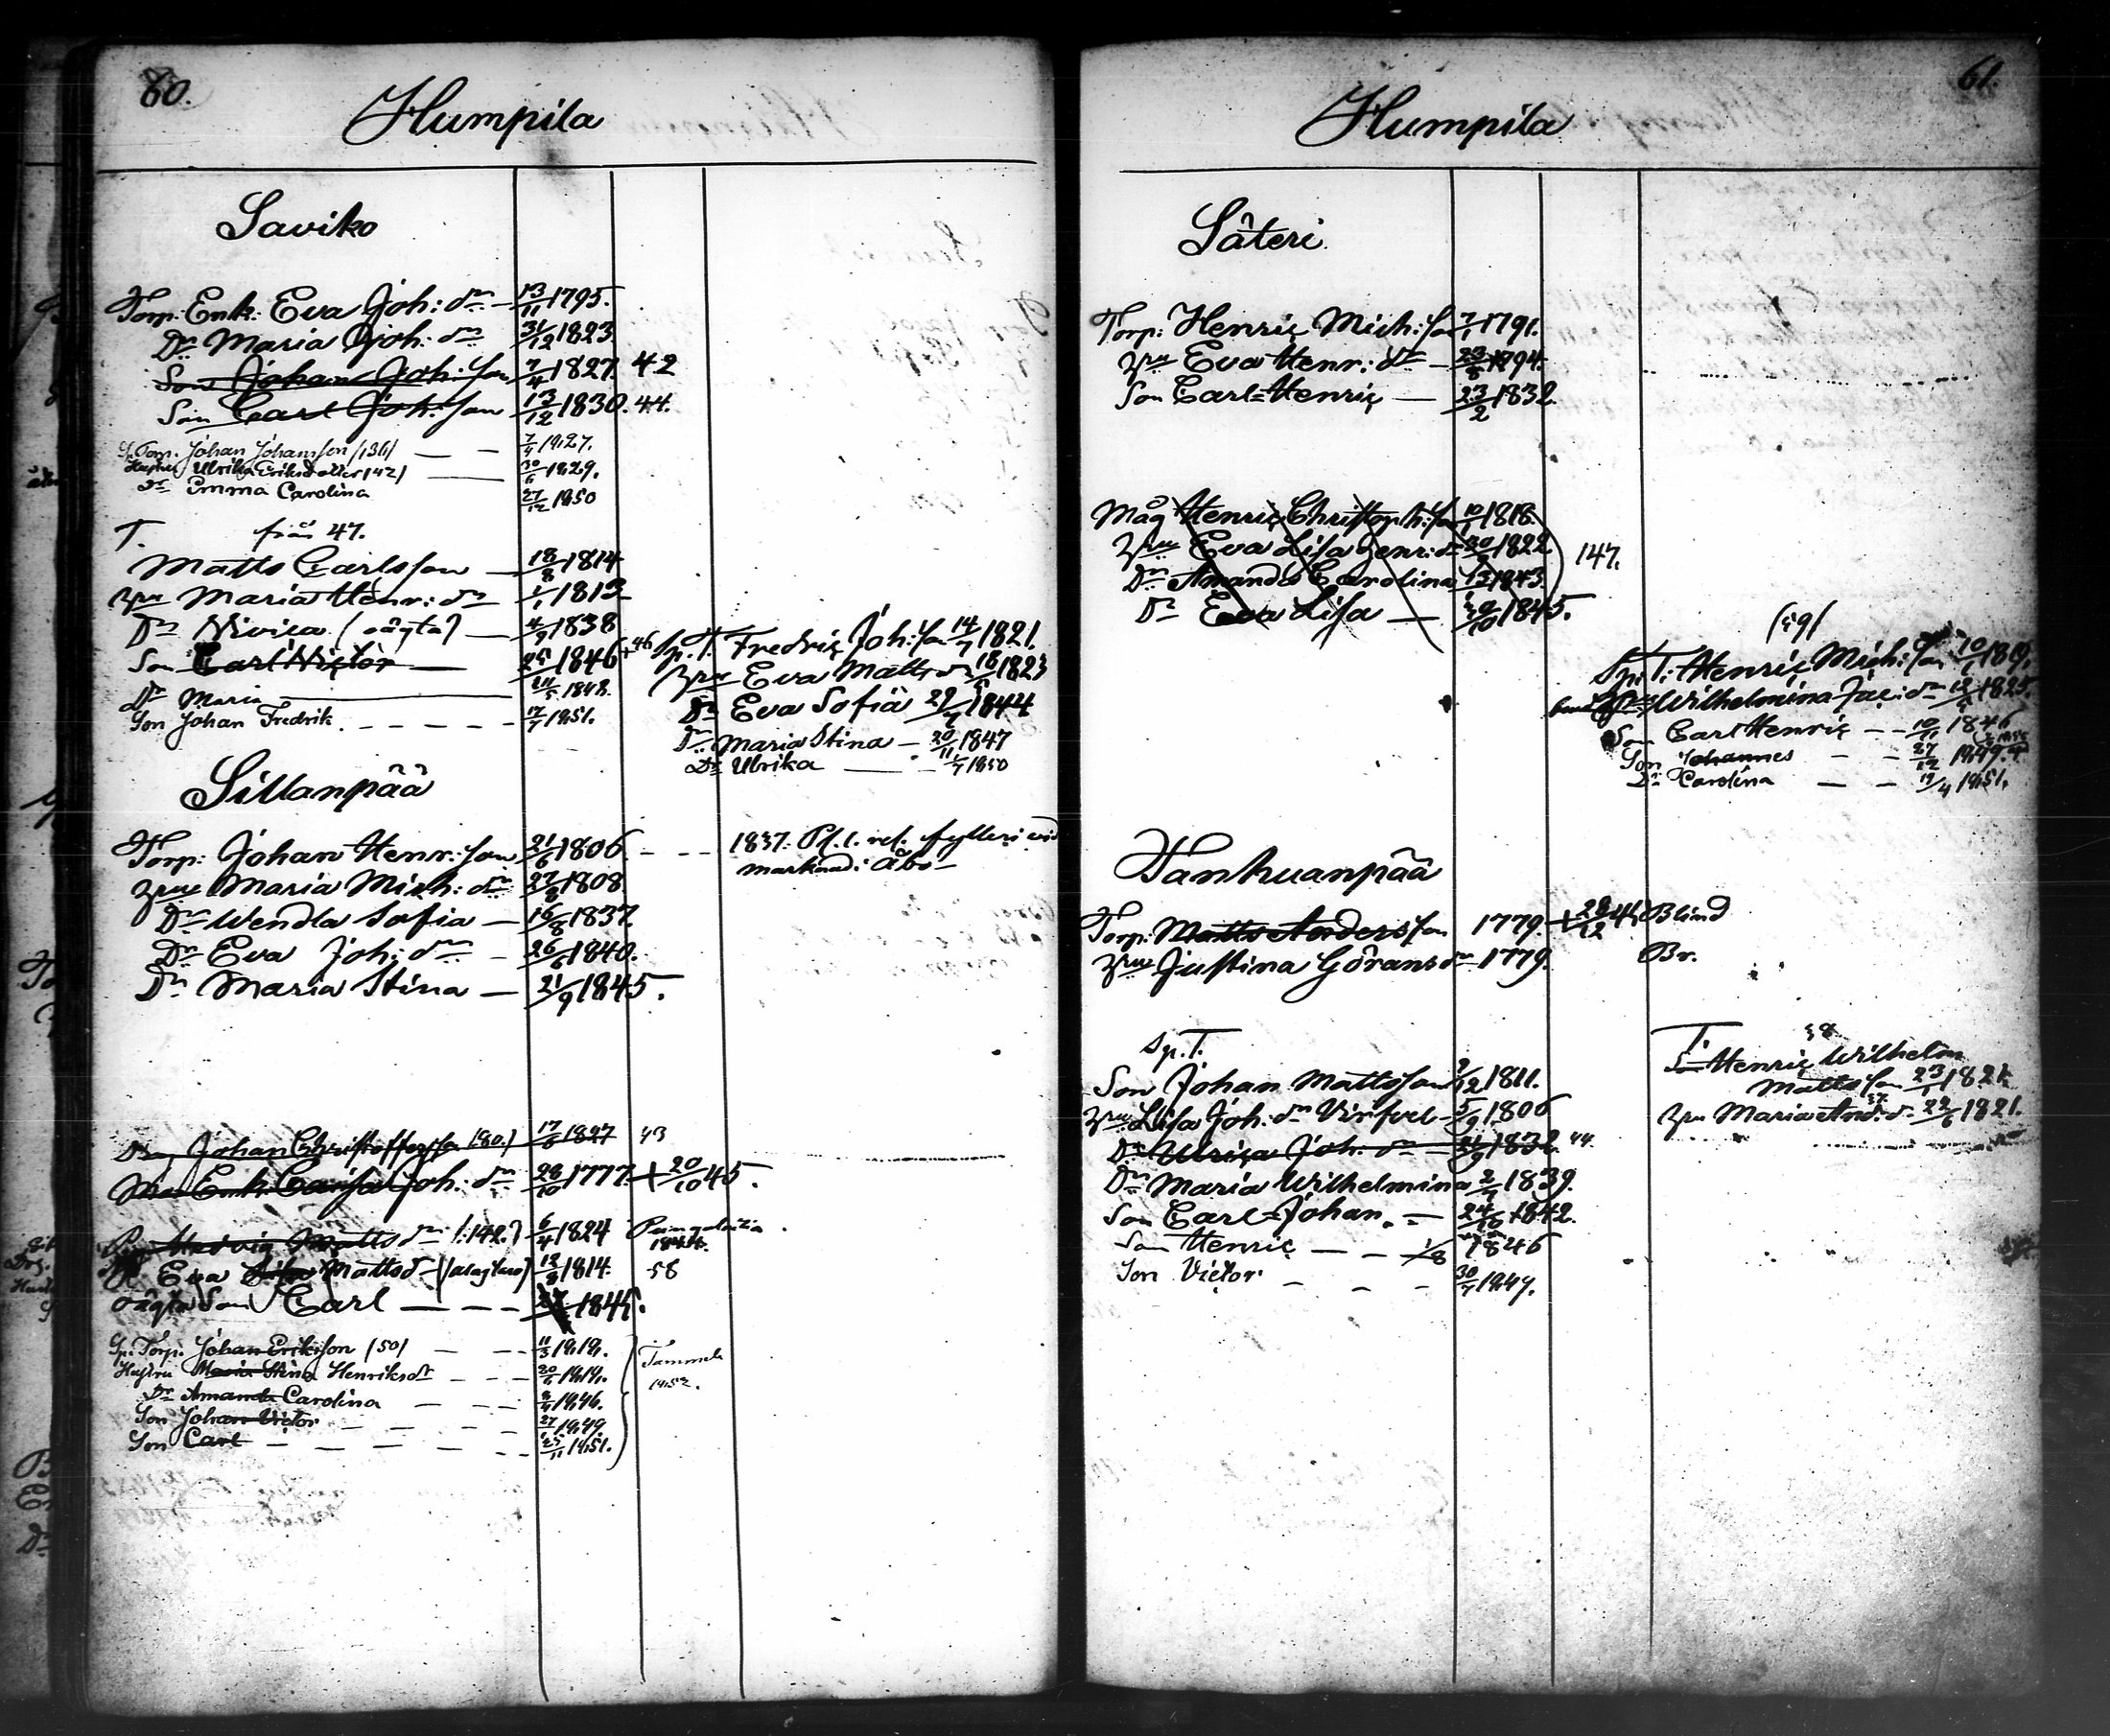 60.
Humpila
Saviko
Torp: Enk: Eva Joh: dr 13/11 1795.
Dr Maria Joh: dr 31/12 1823.
Son Johan Joh: son 7/4 1827. 42
Son Carl Joh: son 13/12 1830. 44.
Sp. Torp. Johan Johansson /136/ 7/4 1827.
Hustru Ulrika Eriksdotter /42/ 30/6 1829.
Dr Emma Carolina 27/12 1850
T. från 47.
Matts Carlsson 18/8 1814
Maria Henr: dr 1/1 1813
Dr Vivica (oägta) 4/9 1838
Son Carl Victor 25 1846 + 46
Dr Maria 1848.
Son Johan Fredrik 17/7 1851.
Sp. T. Fredric Joh: son 14/7 1821.
Eva Matts dr 18 1823
Dr Eva Sofia 29 1844
Dr Maria Stina 20/11 1847
Dr Ulrika 1850
Sillanpää
Torp: Johan Henr: son 21/6 1806.
1837. Pl. l. ref. fylleri vid
marknad i Åbo
Maria Mich: dr 27/8 1808.
Dr Wendla Sofia 16/8 1837.
Dr Eva Joh: dr 26/6 1840.
Dr Maria Stina 21/9 1845.
Johan Christoffersson /80./ 17/6 1827 43
Enk: Caisa Joh: dr 28/10 1777. + 20/10 45.
Hedvig Matts dr /:142.) 6/4 1824
Eva Lisa Mattsd 12/8 1814. 58
oägta Son Carl 1845.
Sp. Torp. Johan Eriksson /50/ 11/3 1819.
Hustru Maria Stina Henriksdr 20/6 1819.
Tammela
1852.
Dr Amanda Carolina 1846.
Son Johan Victor 27 1849.
Son Carl 25/11 1851.
61.
Humpila
Säteri
Torp: Henric Mich: son 7/1 1791.
Eva Henr: dr 23 1794.
Son Carl Henric 23/2 1832.
Måg Henric Christoph: son 10 1818.
Eva Lisa Henr: dr 30 1822
147.
Dr Amanda Carolina 13 1843.
Dr Eva Lisa 10 1845.
/59/
Sp. T. Henric Mich: son 10/1 1819.
Wilhelmina Jac: dr 1825.
Son Carl Henric 10/11 1846
Son Johannes 27/12 1849. +
Dr Carolina 19/4 1851.
Tanhuanpää
Torp: Matts Andersson 1779. + 28/12 44. Blind
Justina Görans dr 1779. Br.
Sp. T.
Son Johan Mattsson 12 1811.
Lisa Joh: dr Virfvel 5/9 1806
Dr Ulrica Joh: dr 1832. 44.
Dr Maria Wilhelmina 2/7 1839.
Son Carl Johan 24/10 1842.
Son Henric 1/8 1846
Son Victor 30/7 1849.
T. 38
Henric Wilhelm
Mattsson 23/1 1821.
Maria And: dr 22/6 1821.